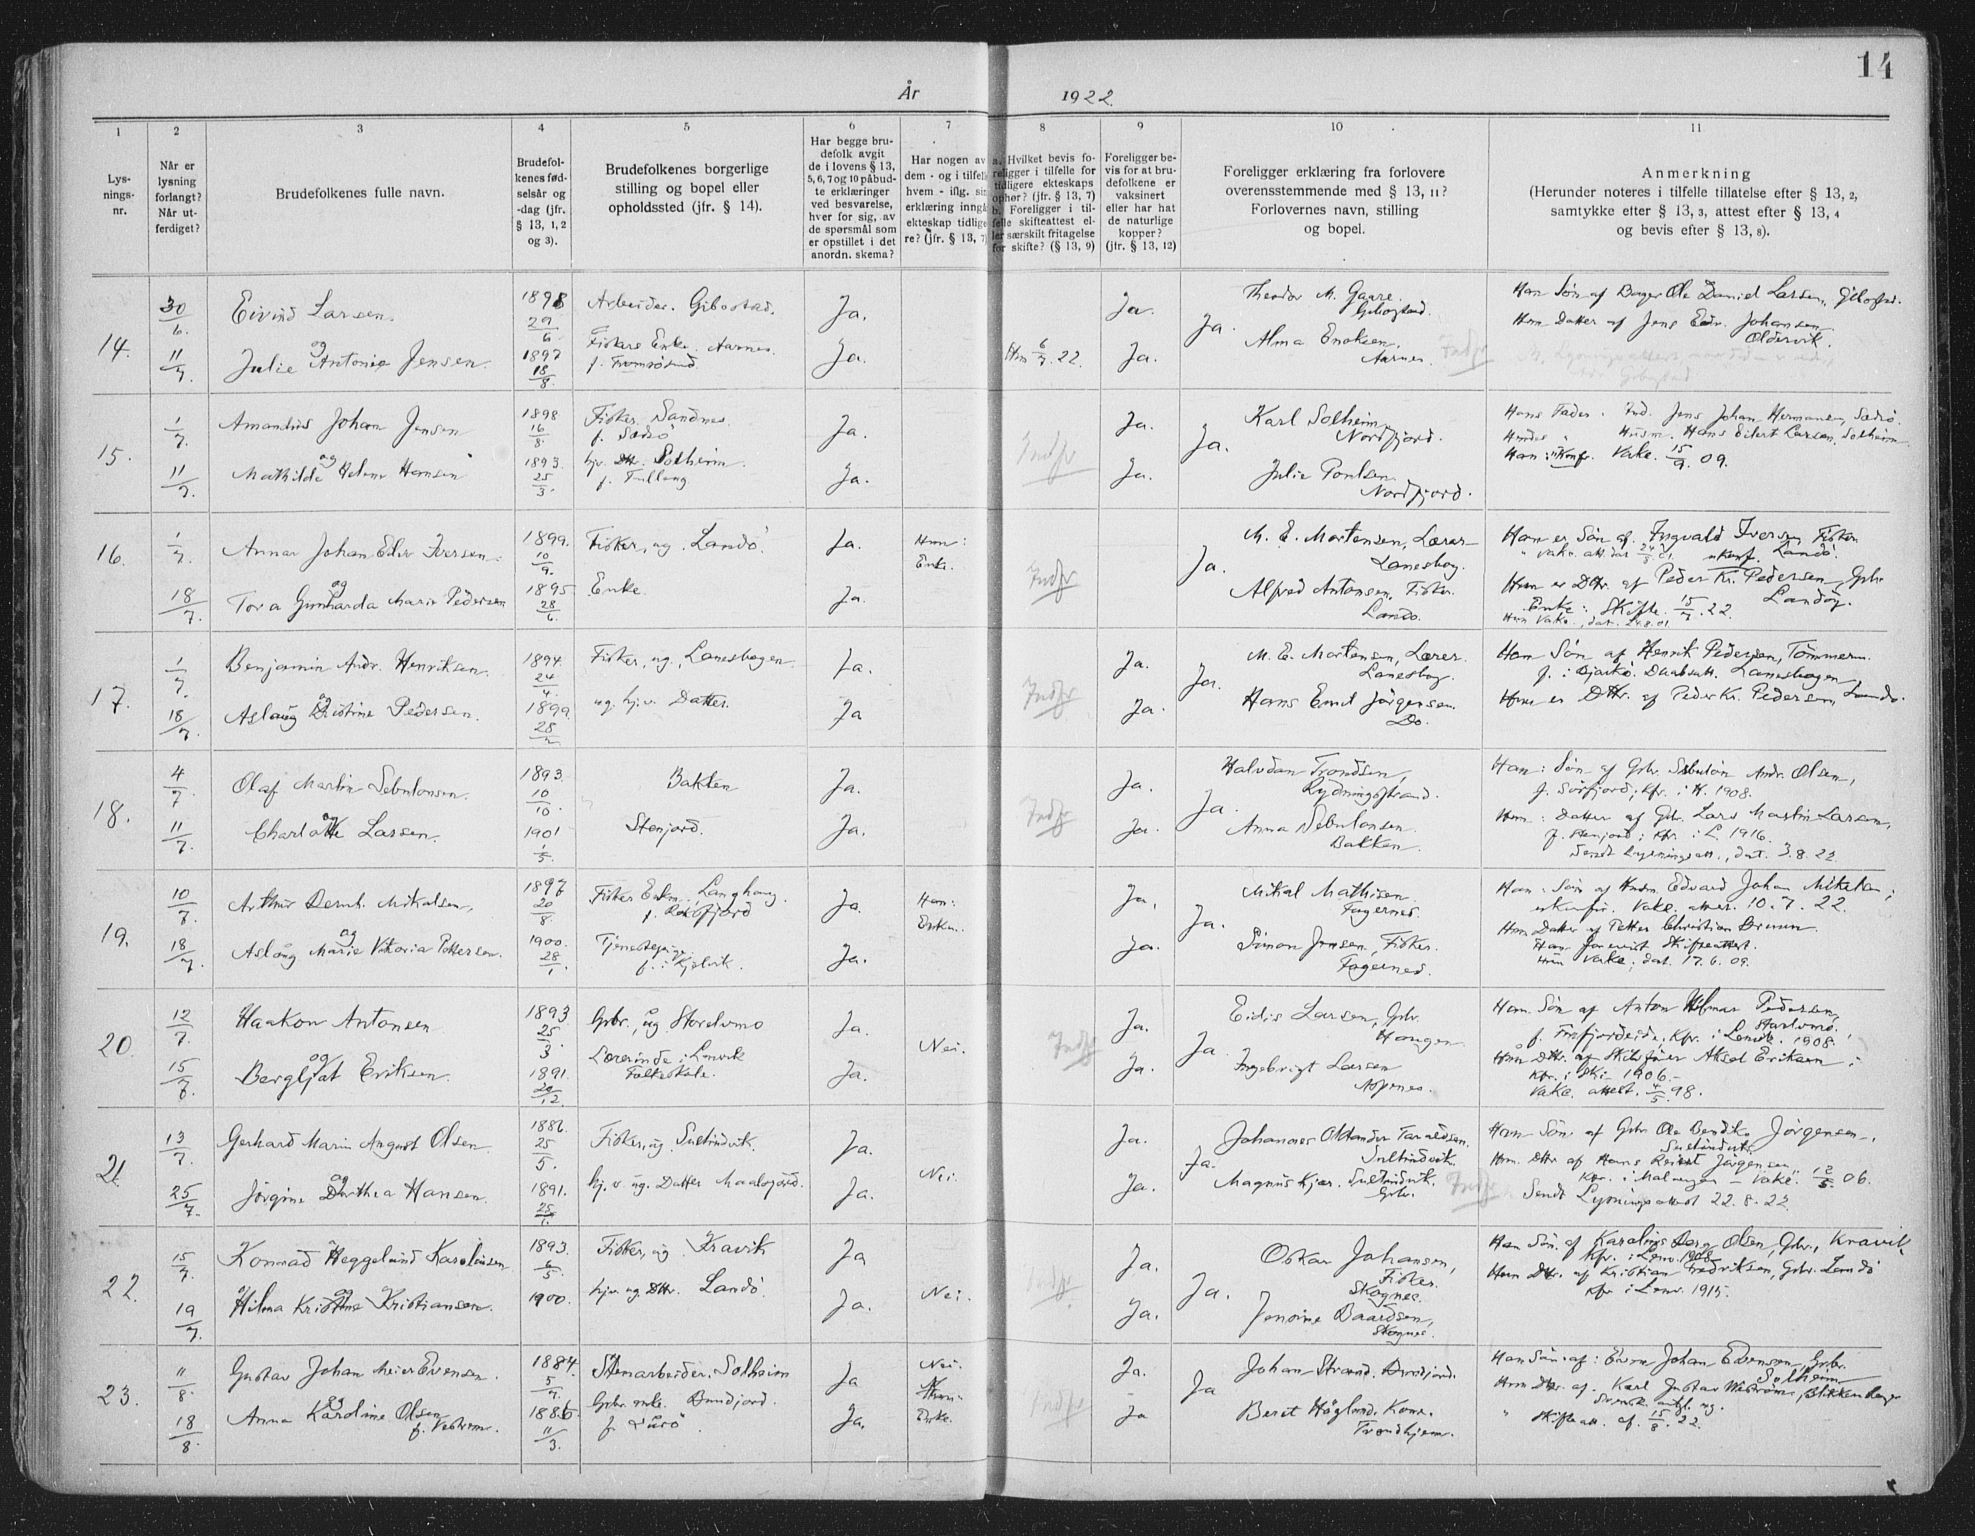 14
År 1922
1
2
3
4
5
6
7
8
9
10
11
Lys-
nings-
nr.
Når er
lysning
forlangt?
Når ut-
ferdiget?
Brudefolkenes fulle navn.
Brudefol-
kenes fød-
selsår og
-dag (jfr.
§ 13, 1, 2
og 3).
Brudefolkenes borgerlige
stilling og bopel eller
opholdssted (jfr. § 14).
Har begge bru-
defolk avgit
de i lovens § 13,
5, 6, 7 og 10 påbud-
te erklæringer
ved besvarelse,
hver for sig, av
de spørsmål som
er opstillet i det
anordn. skema?
Har nogen av
dem - og i tilfelle
hvem - iflg. sin
erklæring inngå
ekteskap tidlige
re? (jfr. § 13, 7)
a. Hvilket bevis fo-
religger i tilfelle for
tidligere ekteskaps
ophør? (jfr. § 13, 7)
b. Foreligger i til-
felle skifteattest el-
ler særskilt fritagelse
for skifte? (§ 13, 9)
Foreligger be-
vis for at bru-
defolkene er
vaksinert
eller har hat
de naturlige
kopper?
(jfr. § 13, 12)
Foreligger erklæring fra forlovere
overensstemmende med § 13, 11?
Forlovernes navn, stilling
og bopel.
Anmerkning
(Herunder noteres i tilfelle tillatelse efter § 13, 2,
samtykke efter § 13, 3, attest efter § 13, 4
og bevis efter § 13, 8).
14.
30/6.
11/7.
Eivind Larsen.
og
Julie Antonie Jensen.
1898
29/6
1897
18/8.
Arbeider. Gibostad.
Fiskers Enke. Aarnes.
f. Tromsøsund.
Ja.
Ja.
Hun 6/7. 22.
Ja.
Ja.
Ja.
Theodor M. Gaare.
Gibostad.
Alma Enoksen.
Aarnes.
Indf
Han Søn af Bager Ole Daniel Larsen, Gibostad.
Hun Datter af Jens Edv. Johansen
Oldervik.
15.
1/7.
11/7.
Amandus Johan Jensen
og
Mathilde Helene Hansen
1898
16/8.
1893.
25/3.
Fisker. Sandnes.
f. Sædø
hjv. Dtr. Solheim.
Ja.
Ja.
Indf
Ja.
Ja.
Ja.
Karl Solheim.
Nordfjord.
Julie Poulsen
Nordfjord.
Hans Fader. Ind. Jens Johan Hermansen, Sædø.
Hendes " Husm. Hans Eilert Larsen, Solheim.
Vakc. 15/9. 09.
16.
1/7.
18/7.
Annar Johan Edv Iversen.
og
Tora Gunharda Marie Pedersen
1899.
10/9.
1895
28/6.
Fisker, ug. Landø.
Enke.
Ja.
Ja.
Hun:
Enke.
Indf
Ja.
M. E. Mortensen, Lærer
Lanesbog.
Alfred Antonsen, Fisker.
Landø.
Han er Søn af Ingvald Iversen, Fisker
Landø.
Hun er Dtr. af Peder Kr. Pedersen, Gbr.
Landøy.
Enke: Skifte. 15/7. 22.
17.
1/7.
18/7.
Benjamin Andr. Henriksen.
og
Aslaug Kristine Pedersen.
1894.
24/4.
1899.
Fisker, ug., Lanesbogen.
ug. hj.v. Datter.
Ja.
Ja
Indf
Ja.
Ja.
Ja.
M. E. Mortensen, Lærer.
Lanesbog.
Hans Emil Jørgensen.
Do.
Han Søn af Henrik Pedersen, Tømmerm.
Lanesbogen
Hun er Dtr. af Peder Kr. Pedersen, Landø.
18.
4/7
11/7.
Olaf Martin Sebulonsen.
og
Charlotte Larsen.
1893.
10/10.
1901
1/5.
Bakken
Stenjord.
Ja.
Ja.
Indf
Ja.
Ja.
Ja.
Halvdan Trondsen,
Lydningsstrand.
Anna Sebulonsen
Bakken.
Han: Søn af Gbr. Sebulon Andr. Olsen,
f. Sørfjord; kfr. i H. 1908.
Hun: Datter af Gbr. Lars Martin Larsen,
f. Stenjord; kfr. i L. 1916.
Sendt Lysningsatt., dat. 3.8.22.
19.
10/7.
18/7.
Arthur Bernh. Mikalsen.
og
Aslaug Marie Viktoria Pettersen.
1897
20/8.
1900.
28/1.
Fisker Enkm., Langhaug
Tjenestepige
f. i Kjelvik.
Ja.
Ja.
Han:
Enkm.
Ja.
Ja.
Ja.
Mikal Mathisen.
Fagernes.
Simon Jensen, Fisker.
Fagernes.
Han: Søn af Husm. Edvard Johan Mikalsen;
Vakc. attest. 10.7.22.
Hun Datter af Petter Christian
Han forevist Skifteattest.
Hun Vakc., dat. 17.6.09.
20.
12/7.
15/7
Haakon Antonsen
og
Bergljot Eriksen.
1893
25/3
1891.
20/12.
Gbr., ug Storelvmo
Lærerinde i Lenvik
Folkeskole.
Ja.
Ja.
Nei.
Indf
Ja.
Ja.
Ja.
Eidis Larsen, Gbr.
Haugen
Ingebrigt Larsen
Aspenes.
Han Søn af Anton Pedersen,
kfr. i Lenvik. 1908.
Hun Dtr. af Skibsfører Aksel Eriksen;
kfr. i Ski 1906.
Vakc. attest. 4/5. 98.
21.
13/7.
25/7.
Gerhard Marin August Olsen.
og
Jørgine Dorthea Hansen.
1886.
25/5.
1891.
Fisker, ug. Sultindvik.
hj.v. ug. Datter Maalsjord.
Ja.
Ja.
Nei.
Ja.
Ja.
Ja.
Sultindvik.
Magnus Kjær. Sultindvik.
Gbr.
Indf
Han Søn af Gbr Ole Bendik Jørgensen,
Sultindvik.
Hun. Dtr af Hans Jørgensen,
kfr. i Malangen - Vakc. 12/5. 06.
Sendt Lysningsattest 22.8.22.
22.
15/7.
19/7
Konrad Heggelund Karoliussen
og
Hilma Kristine Kristiansen.
1893.
6/5.
1900.
Fisker, ug Kravik
hjv. ug. Dtr. Landø
Ja
Ja.
Nei.
Indf
Ja.
Ja.
Ja.
Oskar Johansen,
Fisker.
Skognes.
Jensine Baardsen,
Skognes.
Han Søn af Karolius Olsen, Gbr., Kravik,
kfr. i Lenv. 1908
Hun Dtr. af Kristian Fredriksen, Gbr. Landø
kfr. i Lenv. 1915.
23.
11/8.
18/8.
Gustav Johan Meier Evensen.
og
Anna Karoline Olsen
f. Vestrøm.
1884.
5/7.
1886.
11/3.
Stenarbeider. Solheim
Gbr. enke.
Ja
Ja.
Nei.
Hun:
Enke.
Indf
Ja.
Ja
Ja
Johan Strand.
Berit Høglund, Kone.
Trondhjem.
Han Søn af: Even Johan Evensen, Gbr.
Solheim
Hun Dtr. af. Karl Gustav
Skifteatt. af. 15/8. 22.